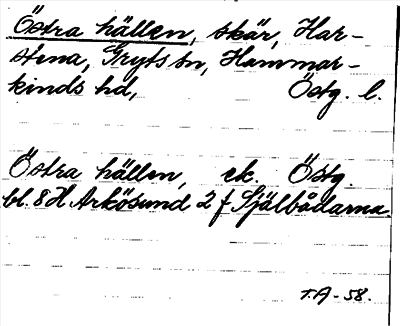 Östra hällen, skär, Har-
stena, Gryts sn, Hammar-
kinds hd, Östg. l.
Östra hällen, ek. Östg.
bl. 8 H Arkösund 2 f Själbådarna
T.A-58.